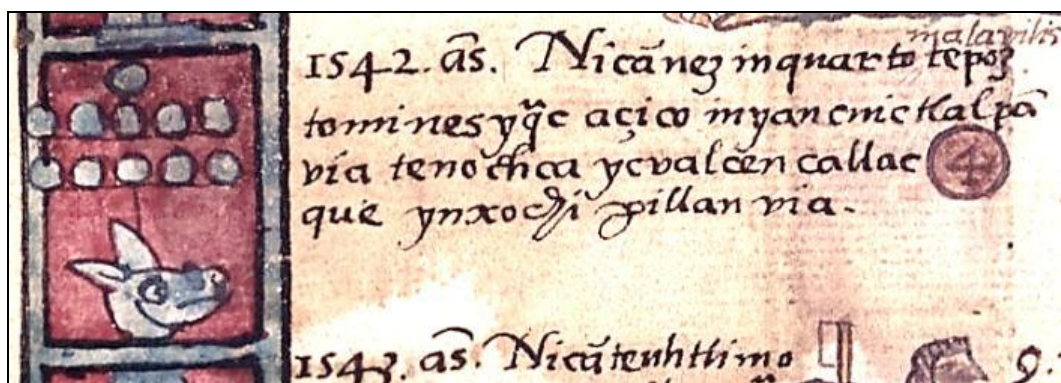 malavilis
1542. ās. Nicā nez in quarto tepoz
tomines yq̄c açico inyancuic tlalpā
via tenochca ycvalcen callac 4
que ynxochi pillan via.
1543. ās. Nicā tevhtlimo 9.